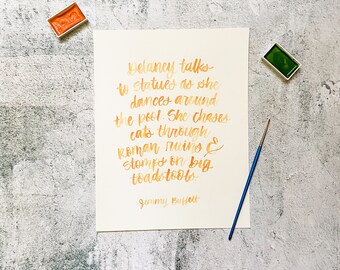 Delaney talks
to statues as she
dances around
the pool. She chases
cats through
Roman ruins &
stomps on big
toadstools.
Jimmy Buffett